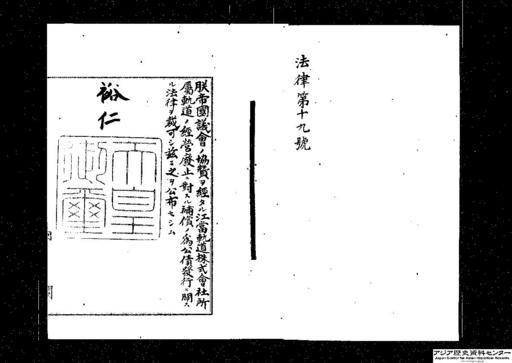 法律第十九號
朕帝國議會ノ協贊ヲ經タル江當軌道株式會社所
屬軌道ノ經營廢止ニ對スル補償ノ爲公債發行ニ關ス
ル法律ヲ裁可シ茲ニ之ヲ公布セシム
裕仁
天皇
御璽
アジア歴史資料センター
Japan Center for Asian Historical Records